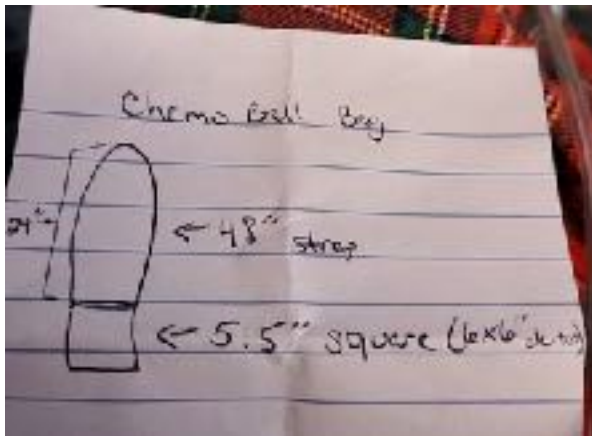 Chemo Ball Bag
24"
← 48" strap
← 5.5" square (6x6"